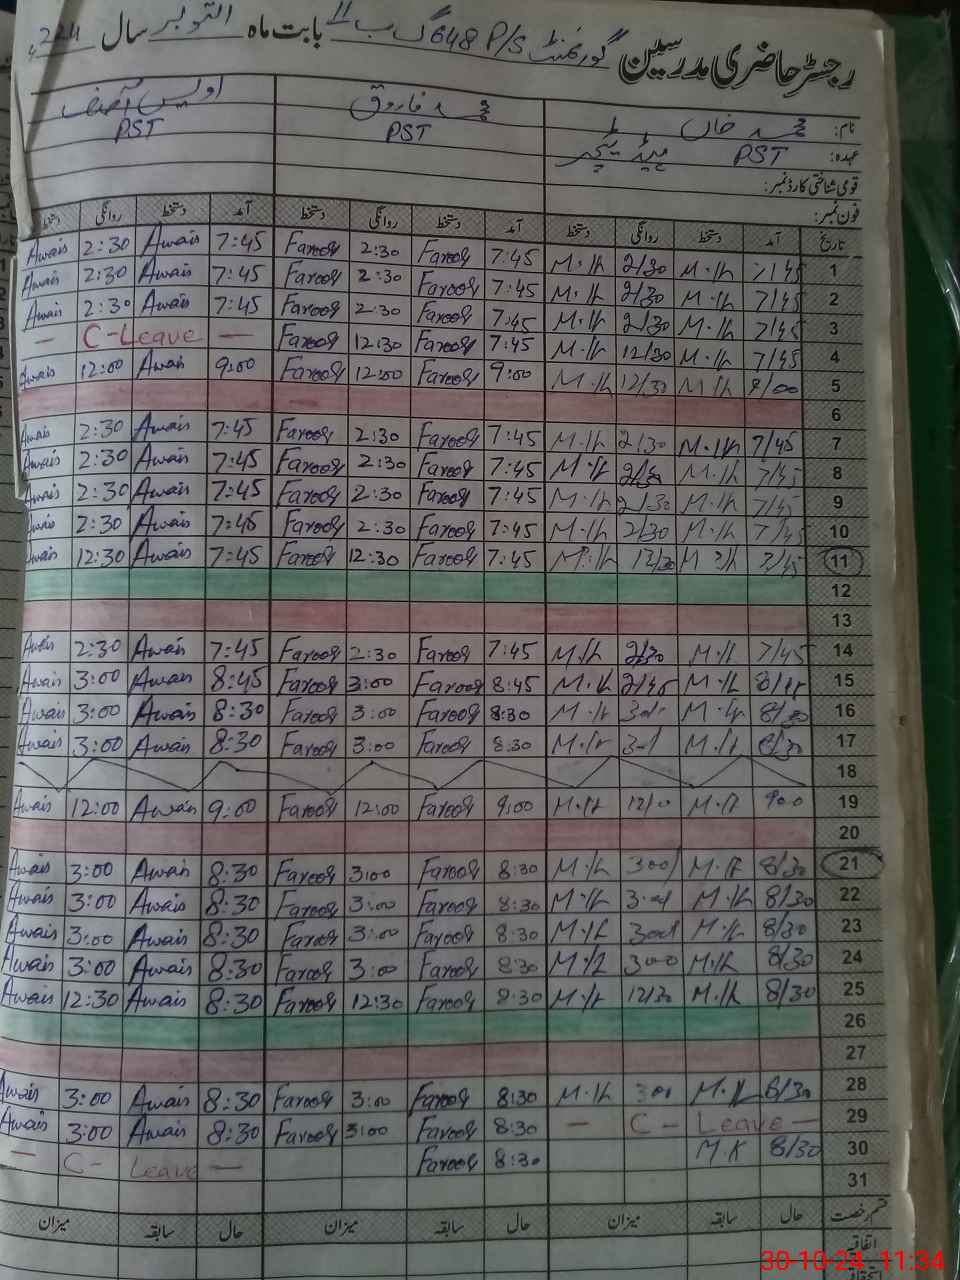 رجسٹر حاضری مدرسین گورنمنٹ P/S 648 گ ب بابت ماہ اکتوبر سال
نام: محمد خاں محمد فاروق اویس آصف
عہدہ: PST ہیڈ ٹیچر PST PST
قومی شناختی کارڈ نمبر:
فون نمبر:
تاریخ آمد دستخط روانگی دستخط آمد دستخط روانگی دستخط آمد دستخط روانگی دستخط
1 7/45 M.K 2/30 M.K 7:45 Farooq 2:30 Farooq 7:45 Awais 2:30 Awais
2 7/45 M.K 2/30 M.K 7:45 Farooq 2:30 Farooq 7:45 Awais 2:30 Awais
3 7/45 M.K 2/30 M.K 7:45 Farooq 2:30 Farooq 7:45 Awais 2:30 Awais
4 7/45 M.K 12/30 M.K 7:45 Farooq 12:30 Farooq — C-Leave —
5 9/00 M.K 12/30 M.K 9:00 Farooq 12:00 Farooq 9:00 Awais 12:00 Awais
6
7 7/45 M.K 2/30 M.K 7:45 Farooq 2:30 Farooq 7:45 Awais 2:30 Awais
8 7/45 M.K 2/30 M.K 7:45 Farooq 2:30 Farooq 7:45 Awais 2:30 Awais
9 7/45 M.K 2/30 M.K 7:45 Farooq 2:30 Farooq 7:45 Awais 2:30 Awais
10 7/45 M.K 2/30 M.K 7:45 Farooq 2:30 Farooq 7:45 Awais 2:30 Awais
11 7/45 M.K 12/30 M.K 7:45 Farooq 12:30 Farooq 7:45 Awais 12:30 Awais
12
13
14 7/45 M.K 2/30 M.K 7:45 Farooq 2:30 Farooq 7:45 Awais 2:30 Awais
15 M.K 2/45 M.K 8:45 Farooq 3:00 Farooq 8:45 Awais 3:00 Awais
16 8/30 M.K M.K 8:30 Farooq 3:00 Farooq 8:30 Awais 3:00 Awais
17 8/30 M.K M.K 8:30 Farooq 3:00 Farooq 8:30 Awais 3:00 Awais
18
19 900 M.K M.K 9:00 Farooq 12:00 Farooq 9:00 Awais 12:00 Awais
20
21 8/30 M.K 300 M.K 8:30 Farooq 3:00 Farooq 8:30 Awais 3:00 Awais
22 8/30 M.K M.K 8:30 Farooq 3:00 Farooq 8:30 Awais 3:00 Awais
23 8/30 M.K M.K 8:30 Farooq 3:00 Farooq 8:30 Awais 3:00 Awais
24 8/30 M.K 300 M.K 8:30 Farooq 3:00 Farooq 8:30 Awais 3:00 Awais
25 8/30 M.K 12/30 M.K 8:30 Farooq 12:30 Farooq 8:30 Awais 12:30 Awais
26
27
28 8/30 M.K 300 M.K 8:30 Farooq 3:00 Farooq 8:30 Awais 3:00 Awais
29 — C - Leave — 8:30 Farooq 3:00 Farooq 8:30 Awais 3:00 Awais
30 8/30 M.K 8:30 Farooq — C- Leave —
31
قسم رخصت حال سابقہ میزان حال سابقہ میزان حال سابقہ میزان
اتفاقیہ
30-10-24 11:34